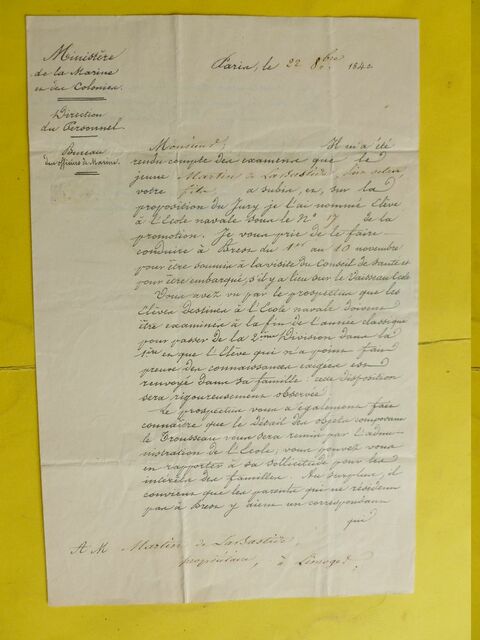 Ministère
de la Marine
et des Colonies
Direction
du Personnel
Bureau
des officiers de Marine
Paris, le 22 8bre 1840
Monsieur, Il m'a été
rendu compte des examens que le
jeune Martin de LaBastide,
votre fils a subis, et, sur la
proposition du Jury, je l'ai nommé Elève
à l'Ecole navale sous le No 17 de la
promotion. Je vous prie de le faire
conduire à Brest du 1er au 10 novembre
pour être soumis à la visite du Conseil de Santé et
pour être embarqué, s'il y a lieu sur le Vaisseau Ecole
Vous avez vu par le prospectus que les
Elèves destinés à l'Ecole navale doivent
être examinés à la fin de l'année classique
pour passer de la 2ème Division dans la
1ère et que l'Elève qui n'a point fait
preuve des connaissances exigées est
renvoyé dans sa famille: cette disposition
sera rigoureusement observée.
Le prospectus vous a également fait
connaître que le détail des objets composant
le Trousseau vous sera remis par l'admi-
nistration de l'Ecole; vous pouvez vous
en rapporter à sa sollicitude pour les
intérêts des familles. Au surplus, il
convient que les parents qui ne résident
pas à Brest y aient un correspondant
qui
A M Martin de LaBastide,
propriétaire, à Limoges.